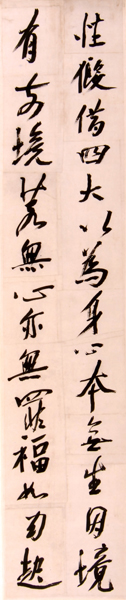 性假借四大以為身心本無生因境
有前境若無心亦無罪福如幻起